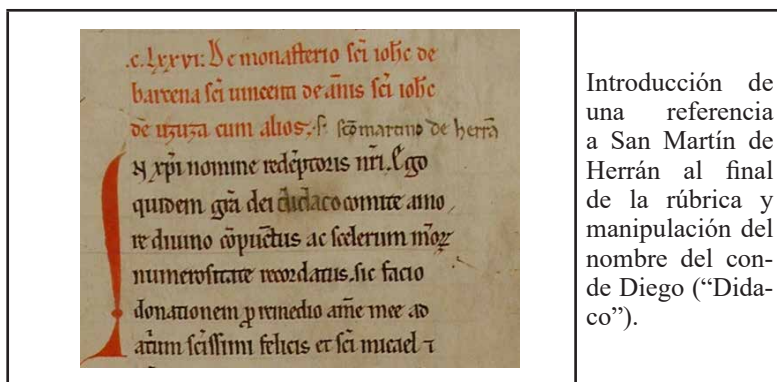 .c. lxxvi: De monasterio sc̃i ioh̃c de
barcena sc̃i uincenti de añis sc̃i ioh̃c
de uzuza cum alios: s̃. sc̃o martino de herrã
IN xp̃i nomine redẽptoris nr̃i. Ego
quidem gr̃a dei didaco comite amo
re diuino cõpuctus ac scelerum meoꝝ
numerositate recordatus. sic facio
donationem ꝓ remedio añie mee ad
atrium sc̃issimi felicis et sc̃i micael ⁊
Introducción de
una referencia
a San Martín de
Herrán al final
de la rúbrica y
manipulación del
nombre del con-
de Diego (“Dida-
co”).